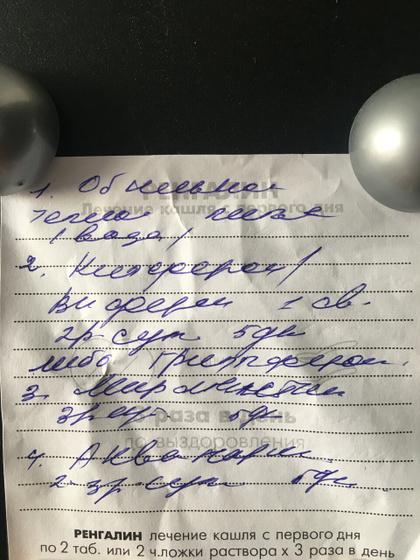 1. Обильное
РЕНГАЛИН
Лечение кашля с первого дня
теплое питье
(вода)
2. Кипферон/
Виферон 1 св.
2р сут 5дн
либо Гриппферон.
3. Мирамистин
3р сут 5дн
3 раза в день
до выздоровления
4. Аквамарис
2-3р сут 5дн.
РЕНГАЛИН лечение кашля с первого дня
по 2 таб. или 2 ч.ложки раствора х 3 раза в день